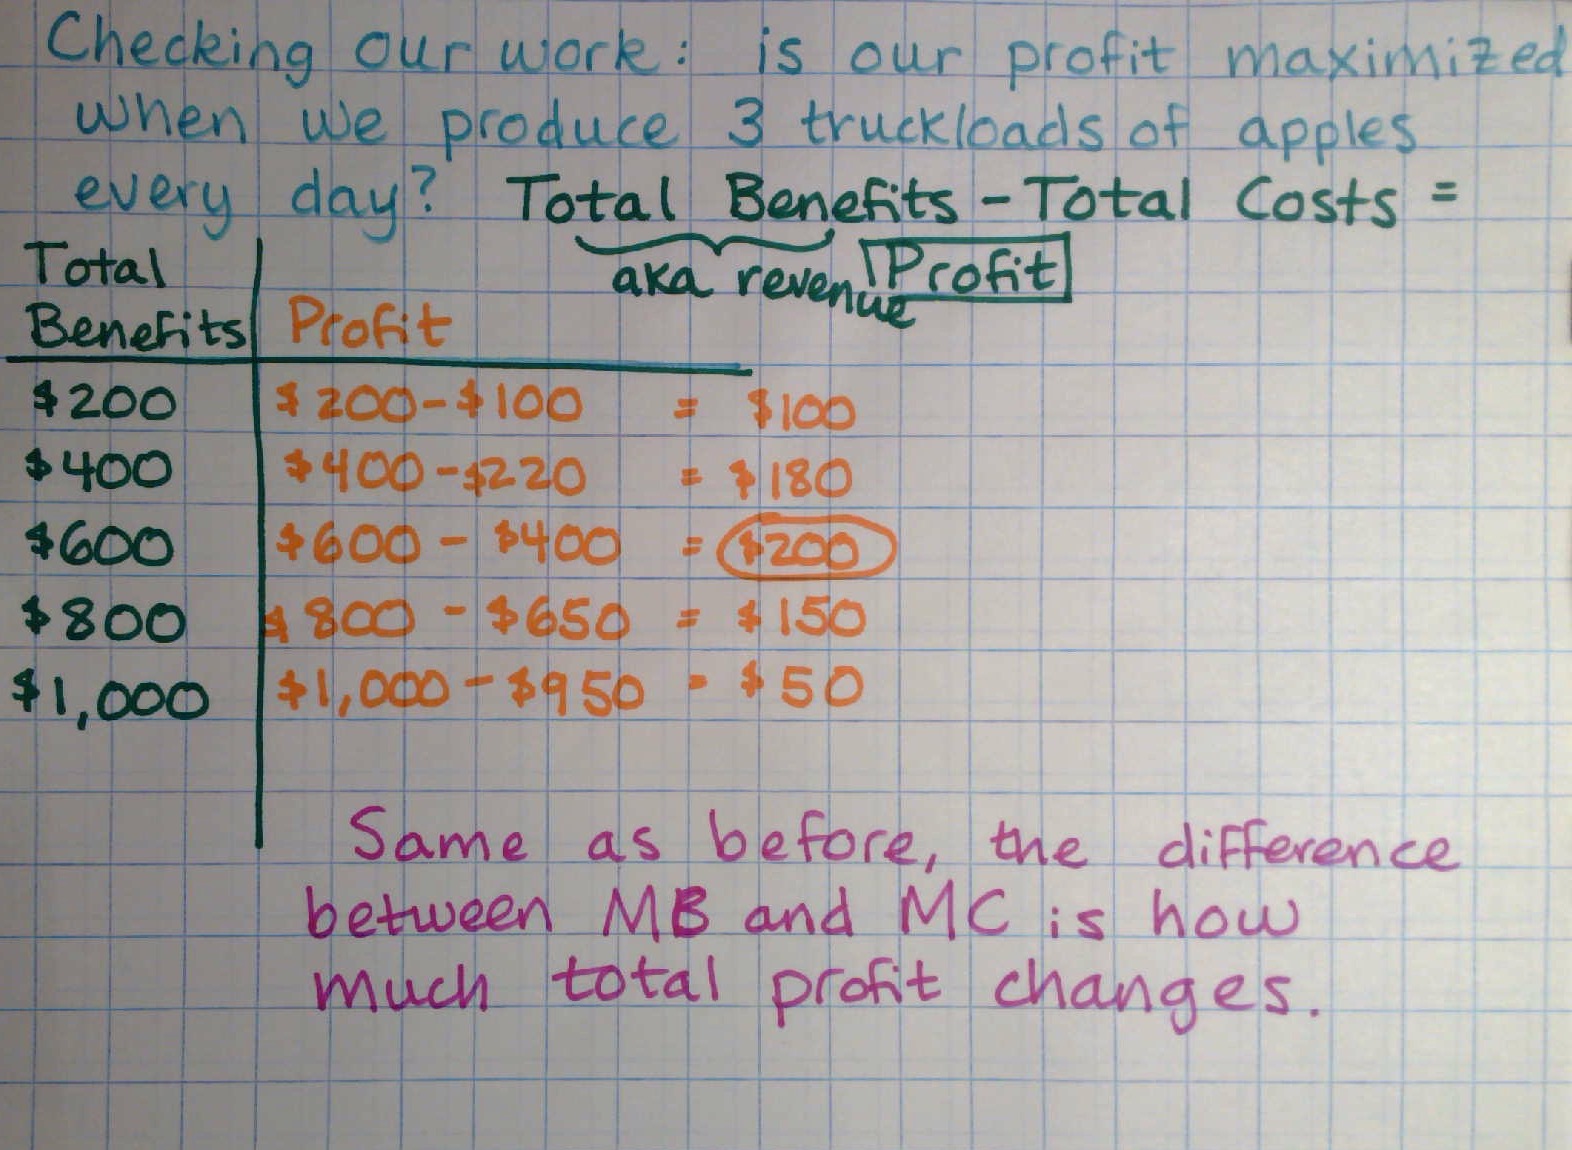 Checking our work: is our profit maximized
when we produce 3 truckloads of apples
every day? Total Benefits - Total Costs =
aka revenue Profit
Total
Benefits Profit
$200 $200-$100 = $100
$400 $400-$220 = $180
$600 $600 - $400 = $200
$800 $800 - $650 = $150
$1,000 $1,000 - $950 = $50
Same as before, the difference
between MB and MC is how
much total profit changes.